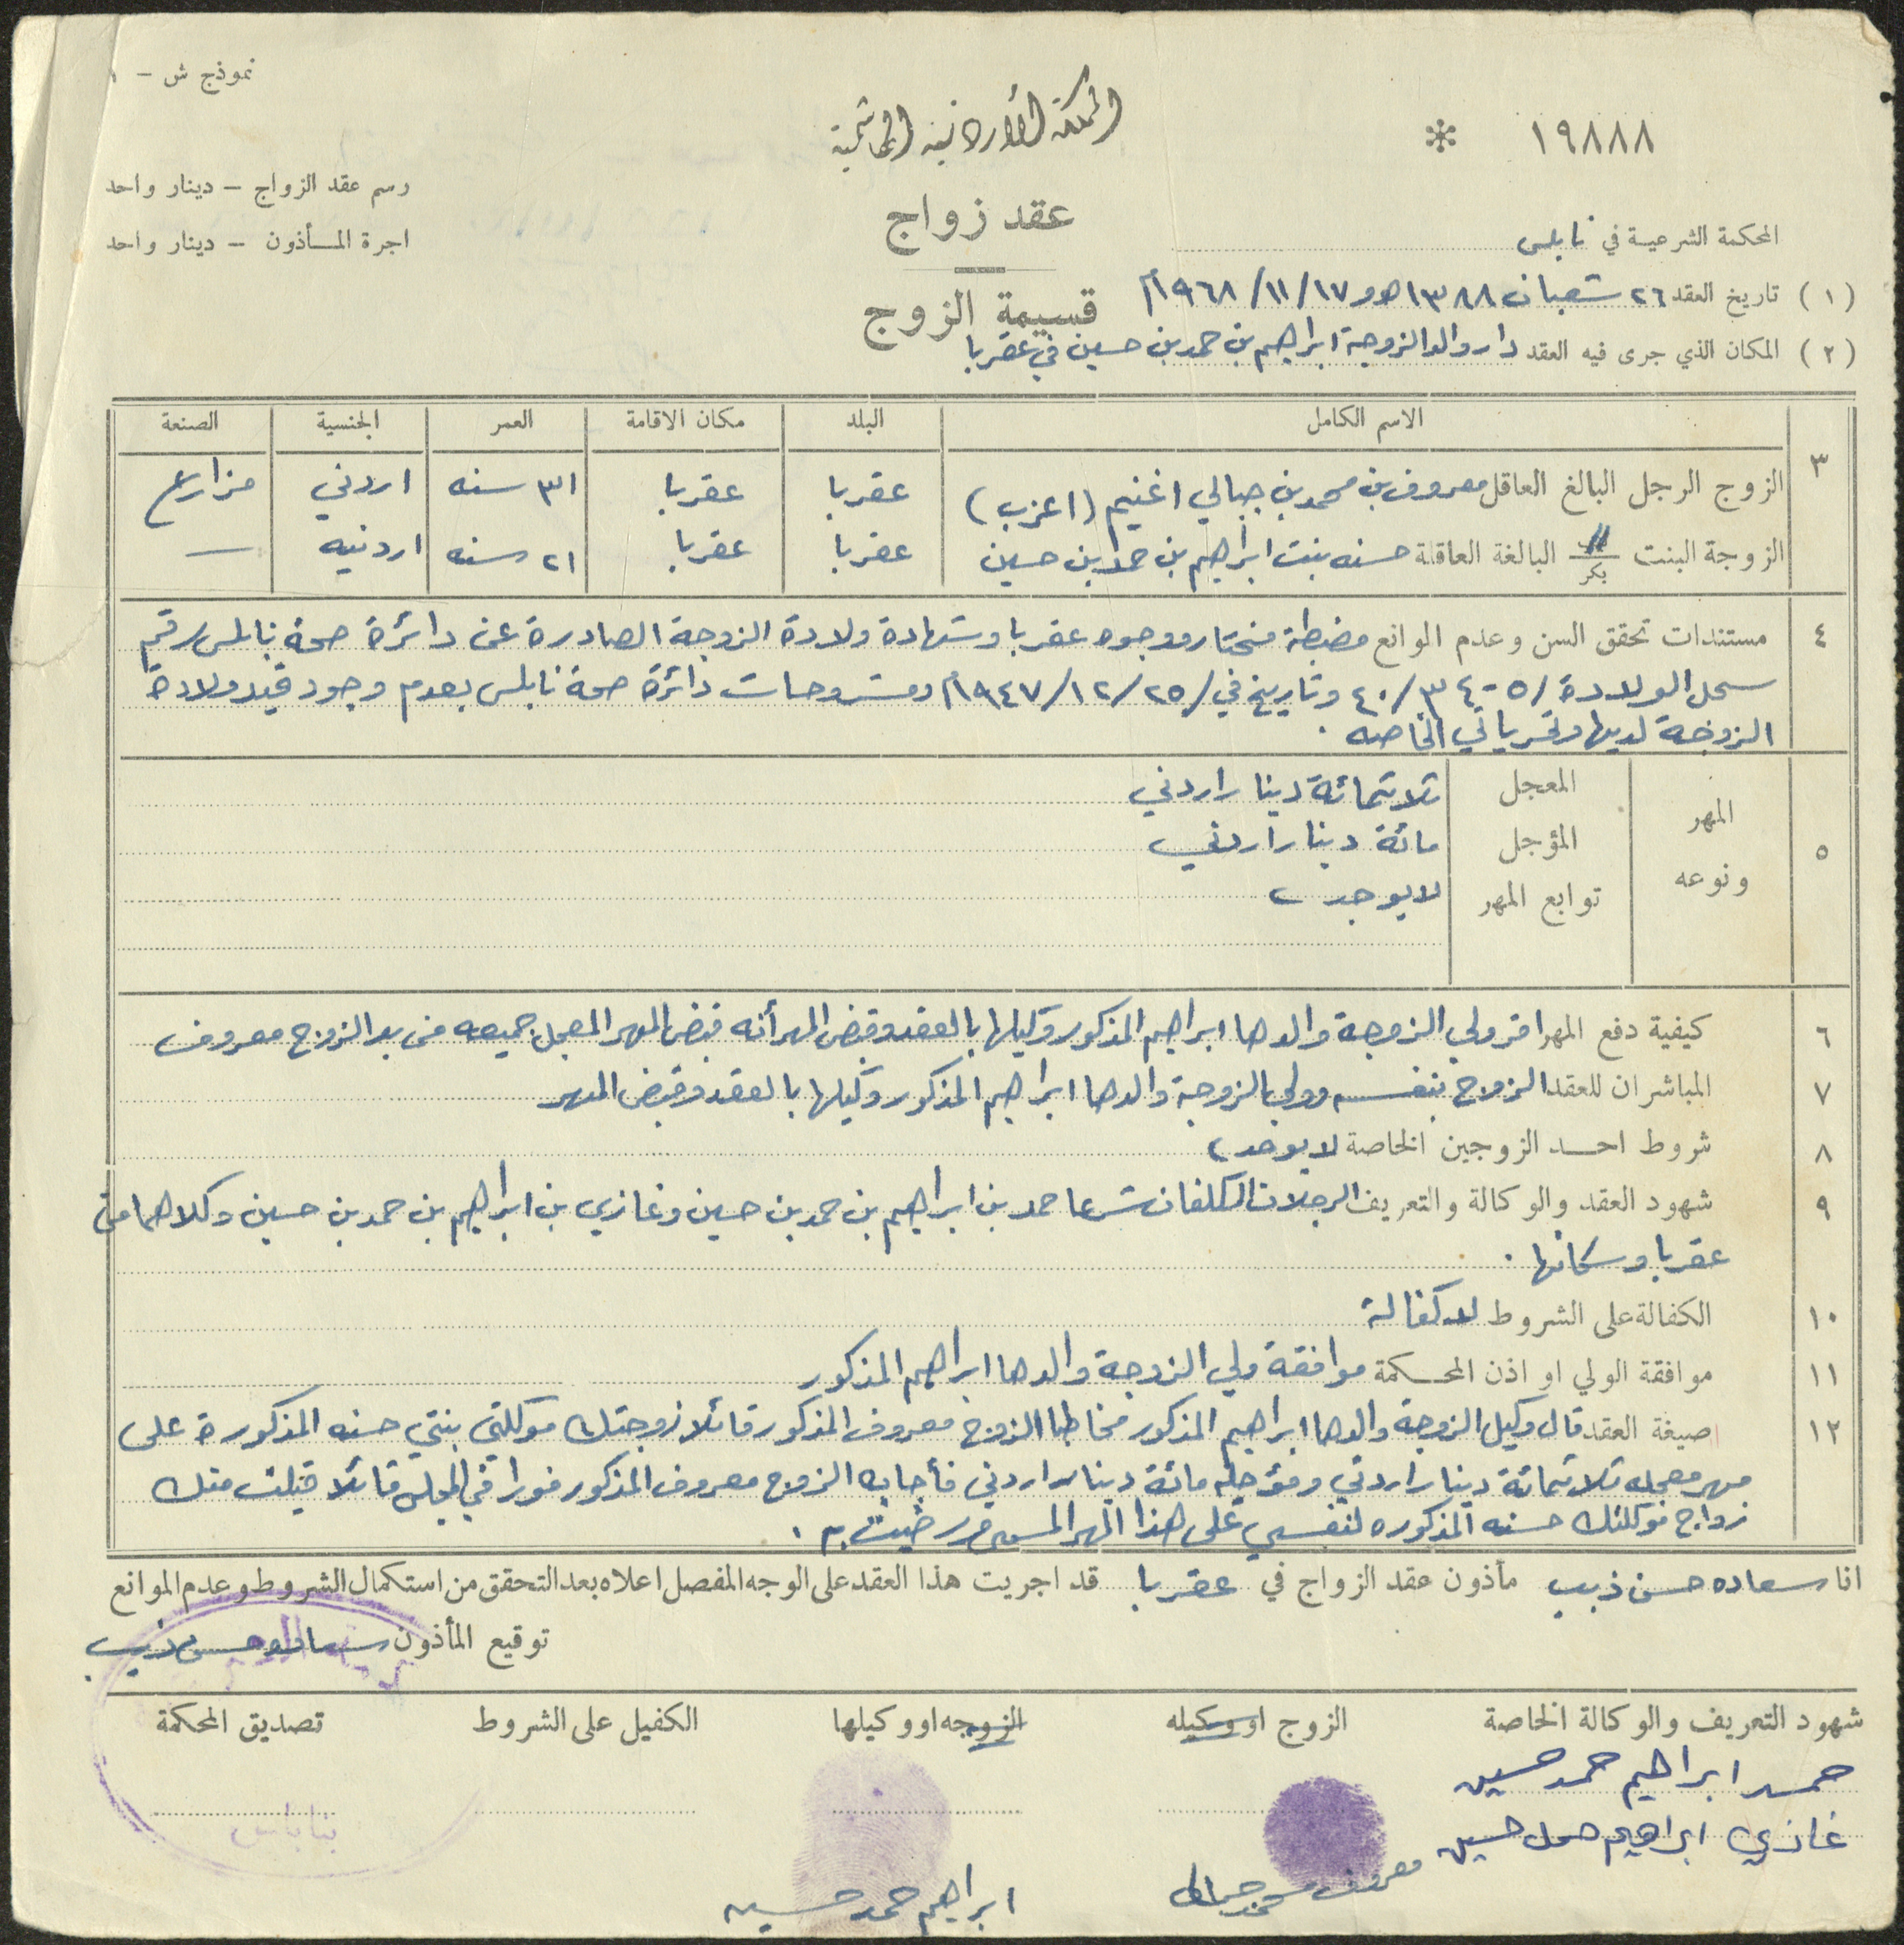 نموذج ش - ١
المملكة الأردنية الهاشمية
١٩٨٨٨ *
رسم عقد الزواج - دينار واحد
عقد زواج
اجرة المأذون - دينار واحد
المحكمة الشرعية في نابلس
قسيمة الزوج
(١) تاريخ العقد ٢٦ شعبان ١٣٨٨ هـ و ١٧/١١/١٩٦٨م
(٢) المكان الذي جرى فيه العقد دار والد الزوجة ابراهيم بن حمد بن حسين في عقربا
٣ الاسم الكامل البلد مكان الاقامة العمر الجنسية الصنعة
الزوج الرجل البالغ العاقل معروف بن محمد بن جبالي اغنيم (اعزب) عقربا عقربا ٣١ سنه اردني مزارع
الزوجة البنت بكر البالغة العاقلة حسنه بنت ابراهيم بن حمد بن حسين عقربا عقربا ٢١ سنه اردنيه —
٤ مستندات تحقق السن وعدم الموانع مضبطة مختار ووجوه عقربا وشهادة ولادة الزوجة الصادرة عن دائرة صحة نابلس رقم
سجل الولادة ٤٠/٣٤٠٥ وتاريخ في ٢٥/١٢/١٩٤٧م ومشروحات دائرة صحة نابلس بعدم وجود قيد ولادة
الزوجة لديها وتحرياتي الخاصه .
٥ المهر ونوعه
المعجل ثلاثمائة دينار اردني
المؤجل مائة دينار اردني
توابع المهر لا يوجد
٦ كيفية دفع المهر اقر ولي الزوجة والدها ابراهيم المذكور وكيلها بالعقد وقبض المهر أنه قبض المهر المعجل جميعه من يد الزوج معروف
٧ المباشران للعقد الزوج بنفسه وولي الزوجة والدها ابراهيم المذكور وكيلها بالعقد وقبض المهر
٨ شروط احد الزوجين الخاصة لا يوجد
٩ شهود العقد والوكالة والتعريف الرجلان المكلفان شرعا حمد بن ابراهيم بن حمد بن حسين وغازي بن ابراهيم بن حمد بن حسين وكلاهما من
عقربا وسكانها .
١٠ الكفالة على الشروط لا كفالة
١١ موافقة الولي او اذن المحكمة موافقة ولي الزوجة والدها ابراهيم المذكور
١٢ صيغة العقد قال وكيل الزوجة والدها ابراهيم المذكور مخاطبا الزوج معروف المذكور قائلا زوجتك موكلتي بنتي حسنه المذكورة على
مهر معجله ثلاثمائة دينار اردني ومؤجله مائة دينار اردني فأجابه الزوج معروف المذكور فورا في المجلس قائلا قبلت منك
زواج موكلتك حسنه المذكوره لنفسي على هذا المهر المسمى ورضيت به .
انا سعاده حسن ذيب مأذون عقد الزواج في عقربا قد اجريت هذا العقد على الوجه المفصل اعلاه بعد التحقق من استكمال الشروط وعدم الموانع
توقيع المأذون سعاده حسن ذيب
شهود التعريف والوكالة الخاصة الزوج او وكيله الزوجه او وكيلها الكفيل على الشروط تصديق المحكمة
حمد ابراهيم حمد حسين
غازي ابراهيم حمد حسين
معروف محمد جبالي
ابراهيم حمد حسين
بنابلس